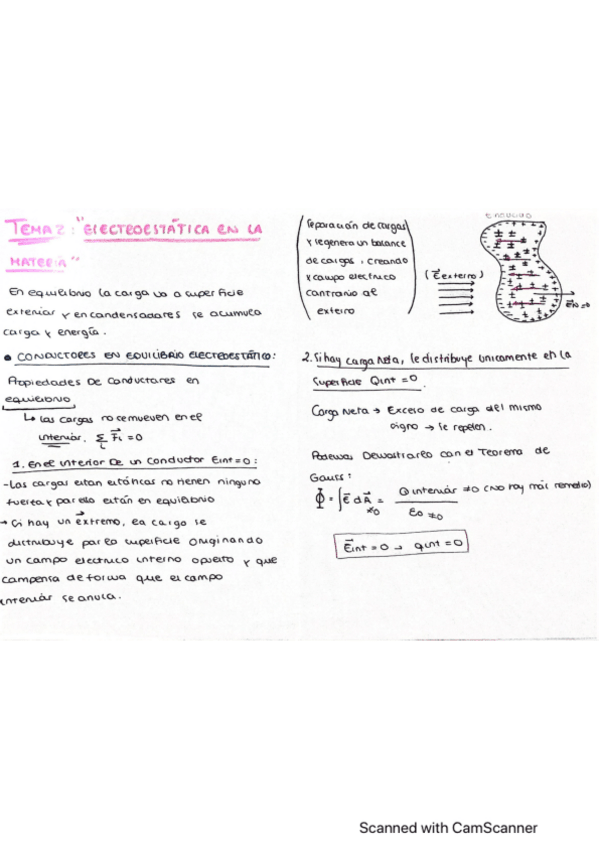 TEMA 2: "ELECTROESTÁTICA EN LA
MATERIA"
En equilibrio la carga va a superficie
exterior y en condensadores se acumula
carga y energía.
• CONDUCTORES EN EQUILIBRIO ELECTROESTÁTICO:
Propiedades De conductores en
equilibrio
↳ Las cargas no se mueven en el
interior. Σ F⃗i = 0
i
1. En el interior De un conductor Eint=0:
- Las cargas estan estáticas no tienen ninguna
fuerza y por ello están en equilibrio
→ Si hay un extremo, la carga se
distribuye por la superficie originando
un campo electrico interno opuesto y que
compensa de forma que el campo
interior se anula.
Separación de cargas
y se genera un balance
de cargas, creando
campo electrico
contrario al
externo
(E⃗ externo)
E⃗N=0
2. Si hay carga Neta, se distribuye unicamente en la
superficie Qint=0.
Carga Neta → Exceso de carga del mismo
signo → se repelen.
Ademas, Demostrareo con el Teorema de
Gauss:
Φ = ∫E⃗ dA⃗ = Q interior ≠0 (No hay más remedio)
≠0
ε0 ≠0
E⃗int = 0 → qint = 0
Scanned with CamScanner